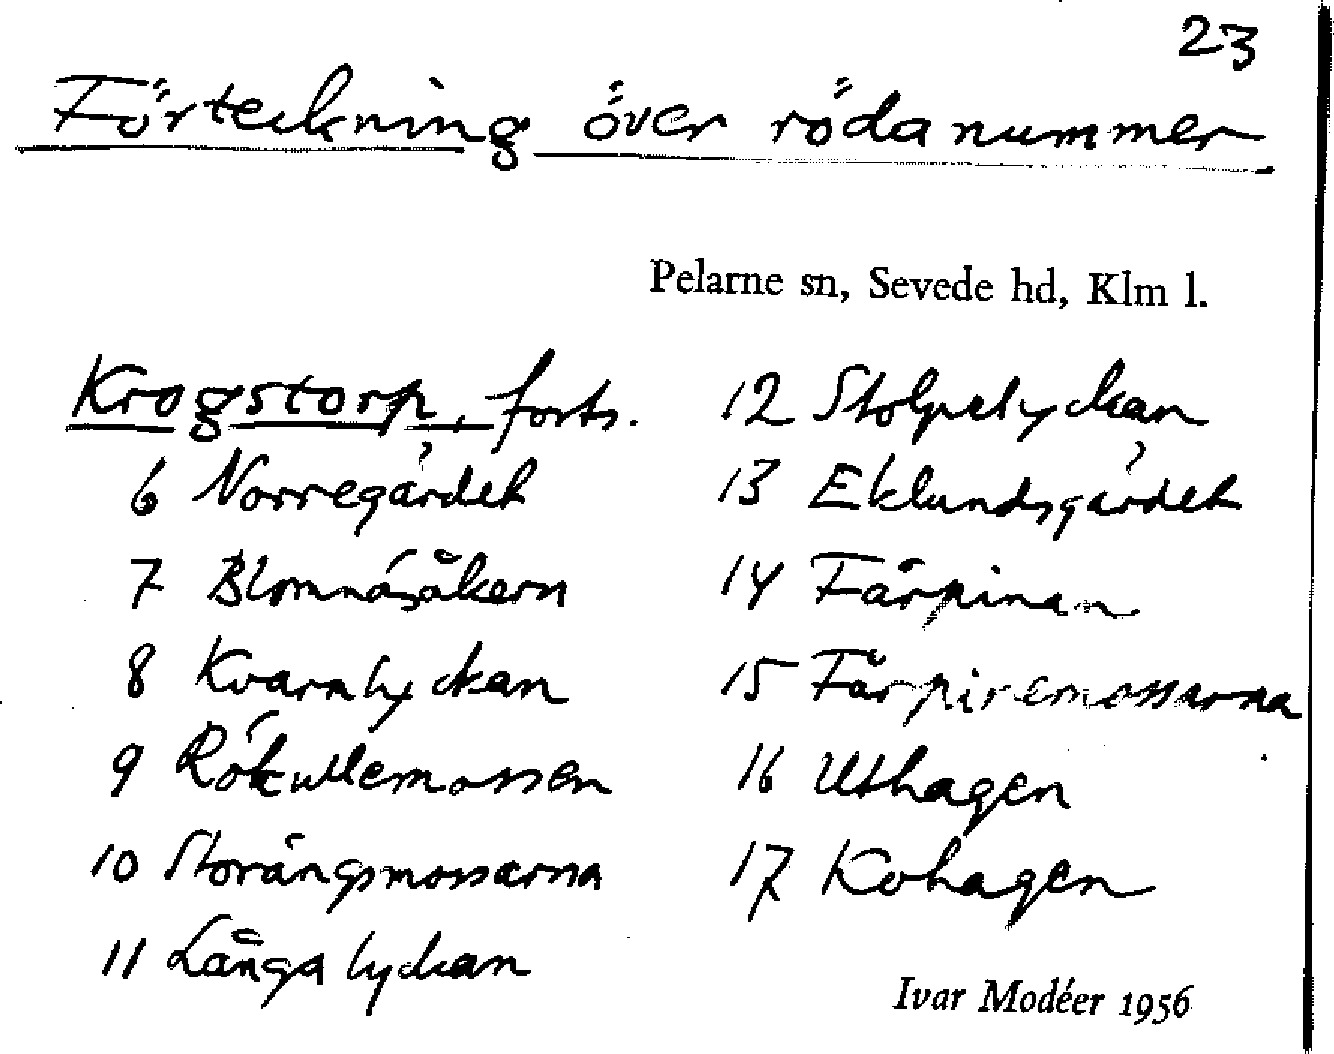 23
Förteckning över röda nummer
Pelarne sn, Sevede hd, Klm l.
Krogstorp, forts.
6 Norregärdet
7 Blomnäsåkern
8 Kvarnlyckan
9 Rökullemossen
10 Storängsmossarna
11 Långa lyckan
12 Stolpelyckan
13 Eklundsgärdet
14 Färpinan
15 Färpiremossarna
16 Uthagen
17 Kohagen
Ivar Modéer 1956